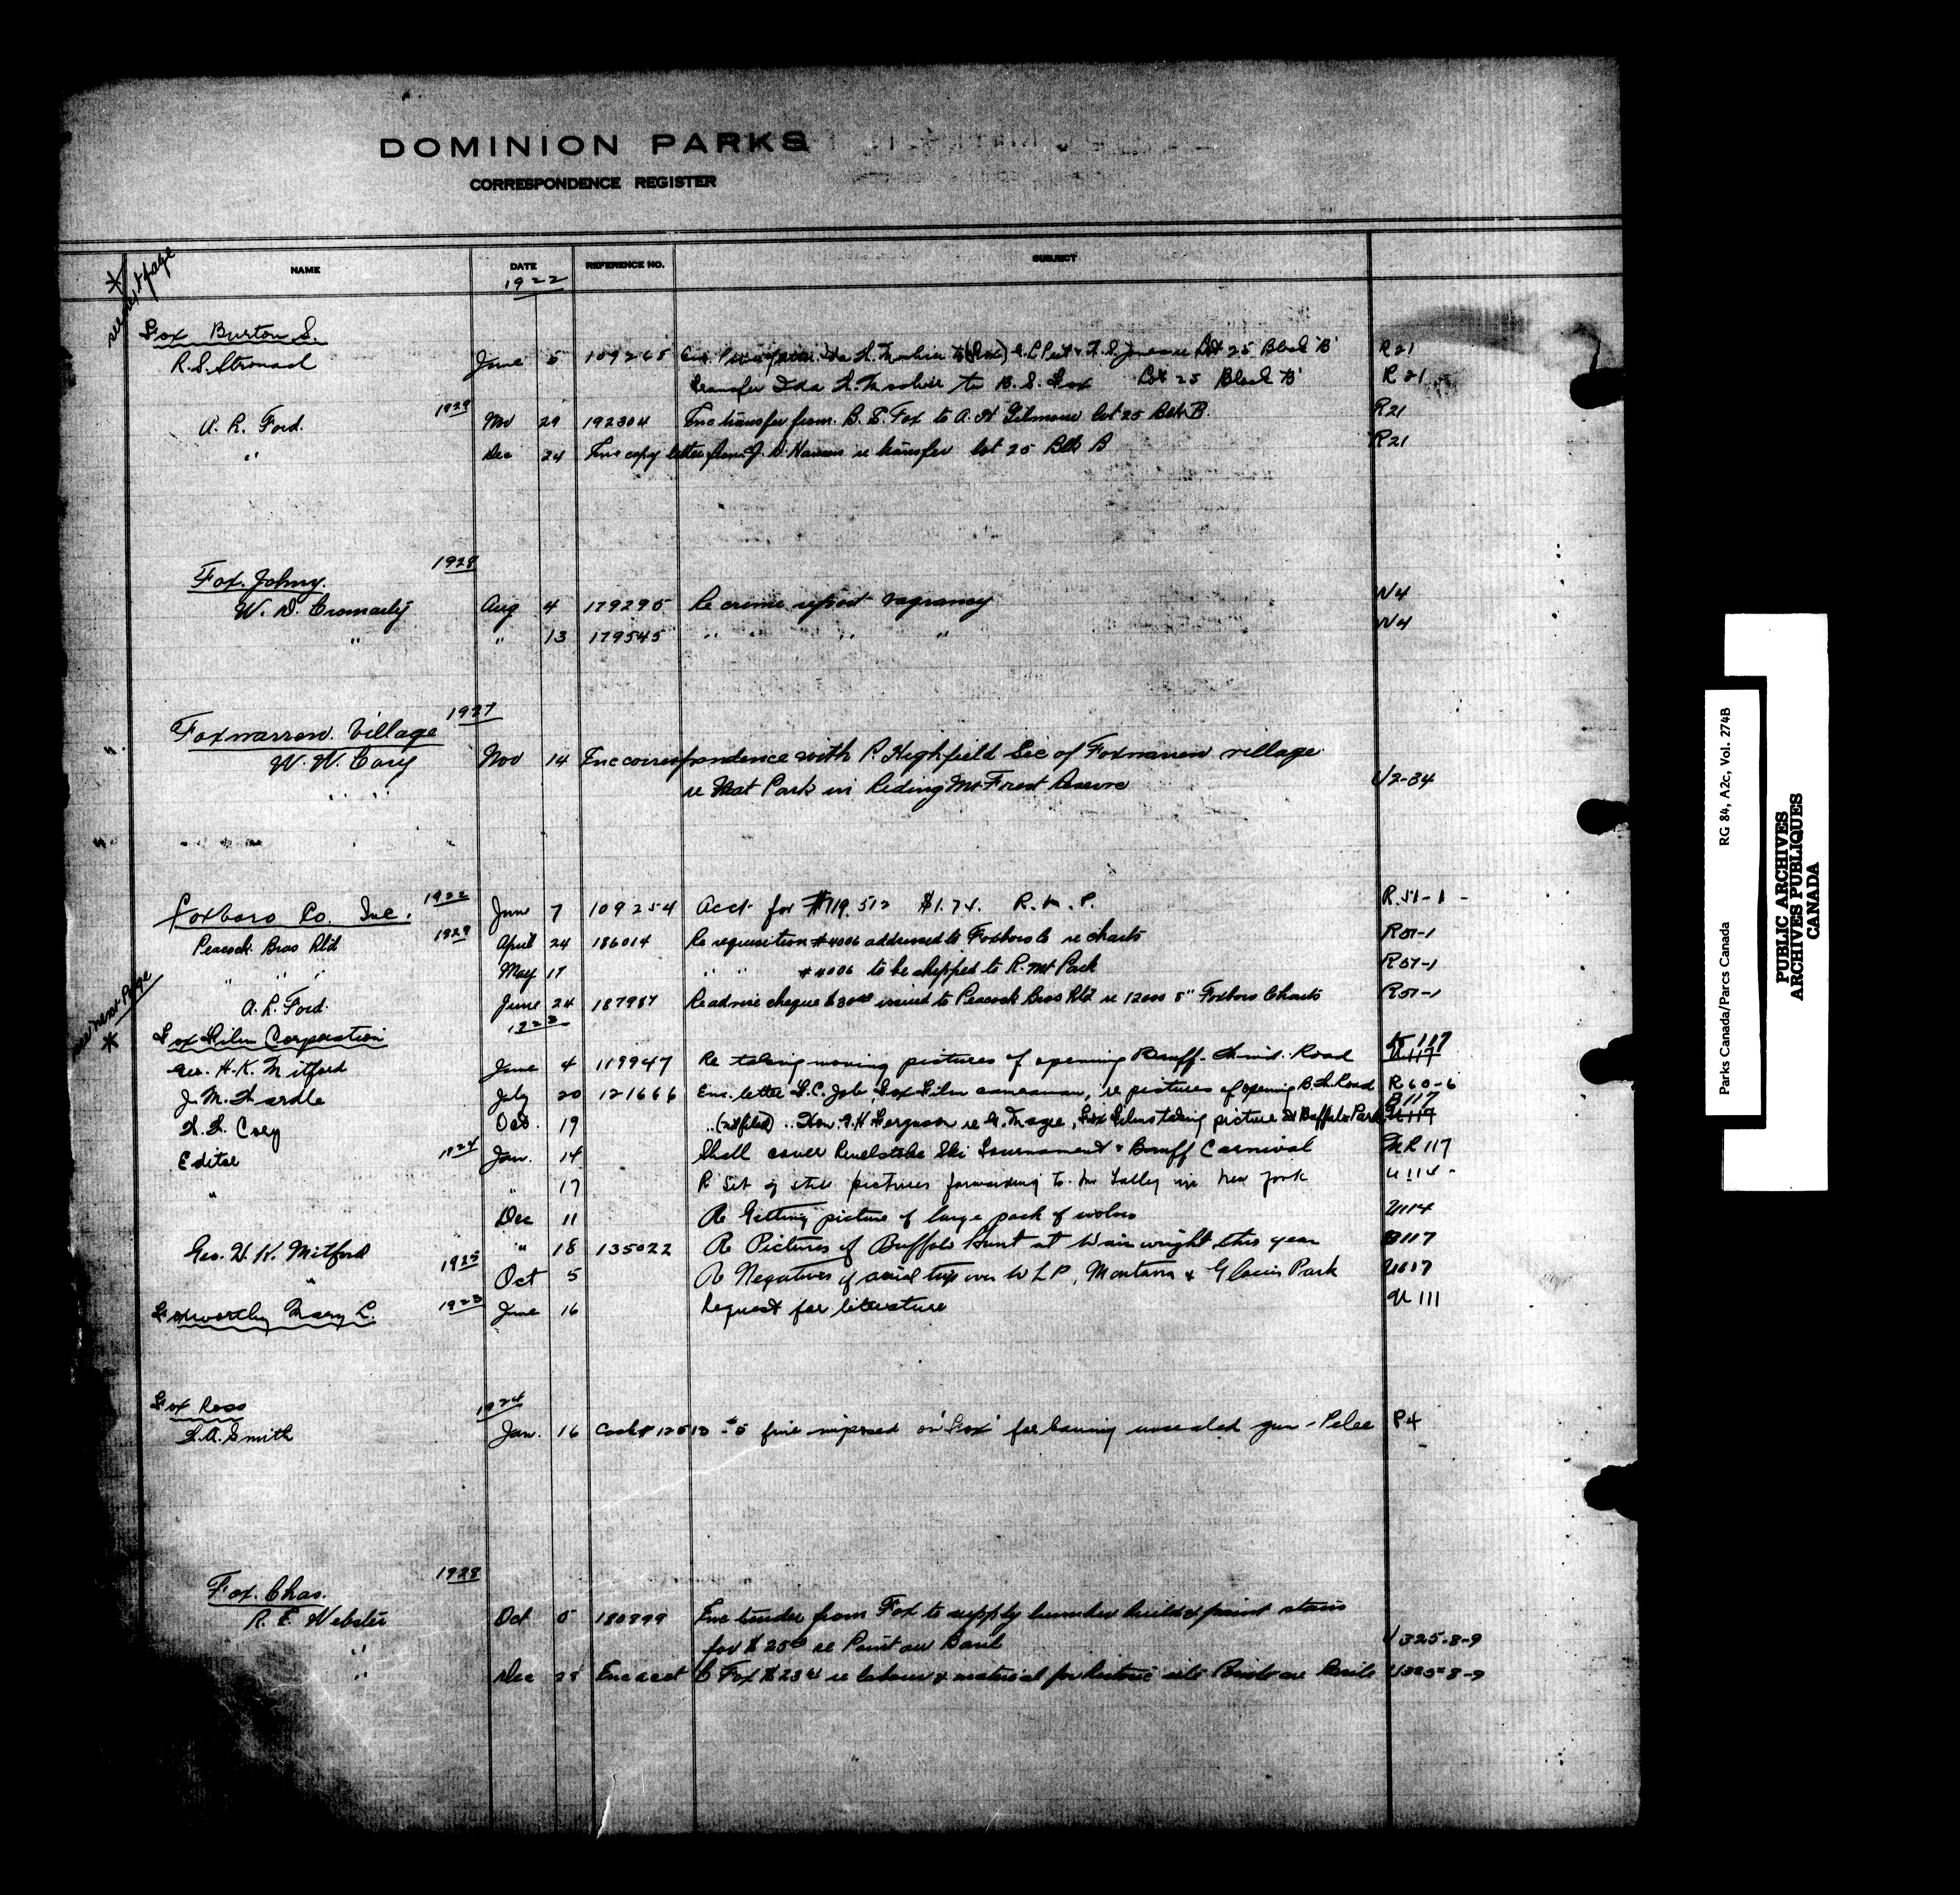 DOMINION PARKS
CORRESPONDENCE REGISTER
NAME DATE REFERENCE NO. SUBJECT
* see next page
1922
Fox Burton S.
R.S. Stronach June 5 109265 Enc. Lot 25 Block 'B' R21
transfer Ida to B.S. Fox Lot 25 Block 'B' R21
1929
A. R. Ford. Nov 29 192304 Enc transfer from B. S. Fox to A. H Gilmour lot 25 Blk B. R21
" Dec 24 Enc copy letter from re transfer lot 25 Blk B R21
1928
Fox. Johny.
W. D. Cromarty Aug 4 179295 Re crime report vagrancy W4
" " 13 179545 " " " " W4
1927
Foxwarren Village
W. W. Cory Nov 14 Enc correspondence with P. Highfield Sec of Foxwarren village
" " re Nat Park in Riding Mt Forest Reserve U2-84
1922
Foxboro Co. Inc. June 7 109254 Acct for #719512 $1.74. R.M.P. R.51-1 -
1929
Peacock Bros Ltd April 24 186014 Re requisition #4006 addressed to Foxboro Co re charts R57-1
" " " May 17 " " #4006 to be shipped to R. Mt Park R57-1
see next Page *
A. R. Ford. June 24 187987 Re advise cheque issued to Peacock Bros Ltd re 12000 8" Foxboro Charts R57-1
1923
Fox Film Corporation
Geo. H.K. Mitford June 4 119947 Re taking moving pictures of opening Banff-Wind. Road K117 U117
J. M. Wardle July 20 121666 Enc. letter cameraman, re pictures of opening Road R60-6
B117
W. W. Cory Oct. 19 " (not filed) " Hon. Ferguson re Magee, Fox Films taking picture at Buffalo Park U117
Editor 1924 Jan. 14 Shall cover Revelstoke Ski Tournament & Banff Carnival MR117
" " 17 R Set of still pictures forwarding to Mr Talley in New York U114 -
Dec 11 Re Getting picture of large pack of wolves U114
Geo. H. K. Mitford " 18 135022 Re Pictures of Buffalo Hunt at Wainwright this year B117
" 1925 Oct 5 Re Negatives of aerial trip over W L P, Montana & Glacier Park U117
Foxworthy Mary L. 1923 June 16 Request for literature U 111
Fox Ross 1924
F.A. Smith Jan. 16 Cash # 12513 - $5 fine imposed on 'Fox' for having unsealed gun - Pelee P4
1928
Fox. Chas.
R. E. Webster Oct 5 180899 Enc tender from Fox to supply lumber build & paint stairs
" for $25 re Point au Baril U325-8-9
" Dec 28 Enc acct C Fox re labour & material for historic site Point au Baril U325-8-9
Parks Canada/Parcs Canada RG 84, A2c, Vol. 274B
PUBLIC ARCHIVES
ARCHIVES PUBLIQUES
CANADA